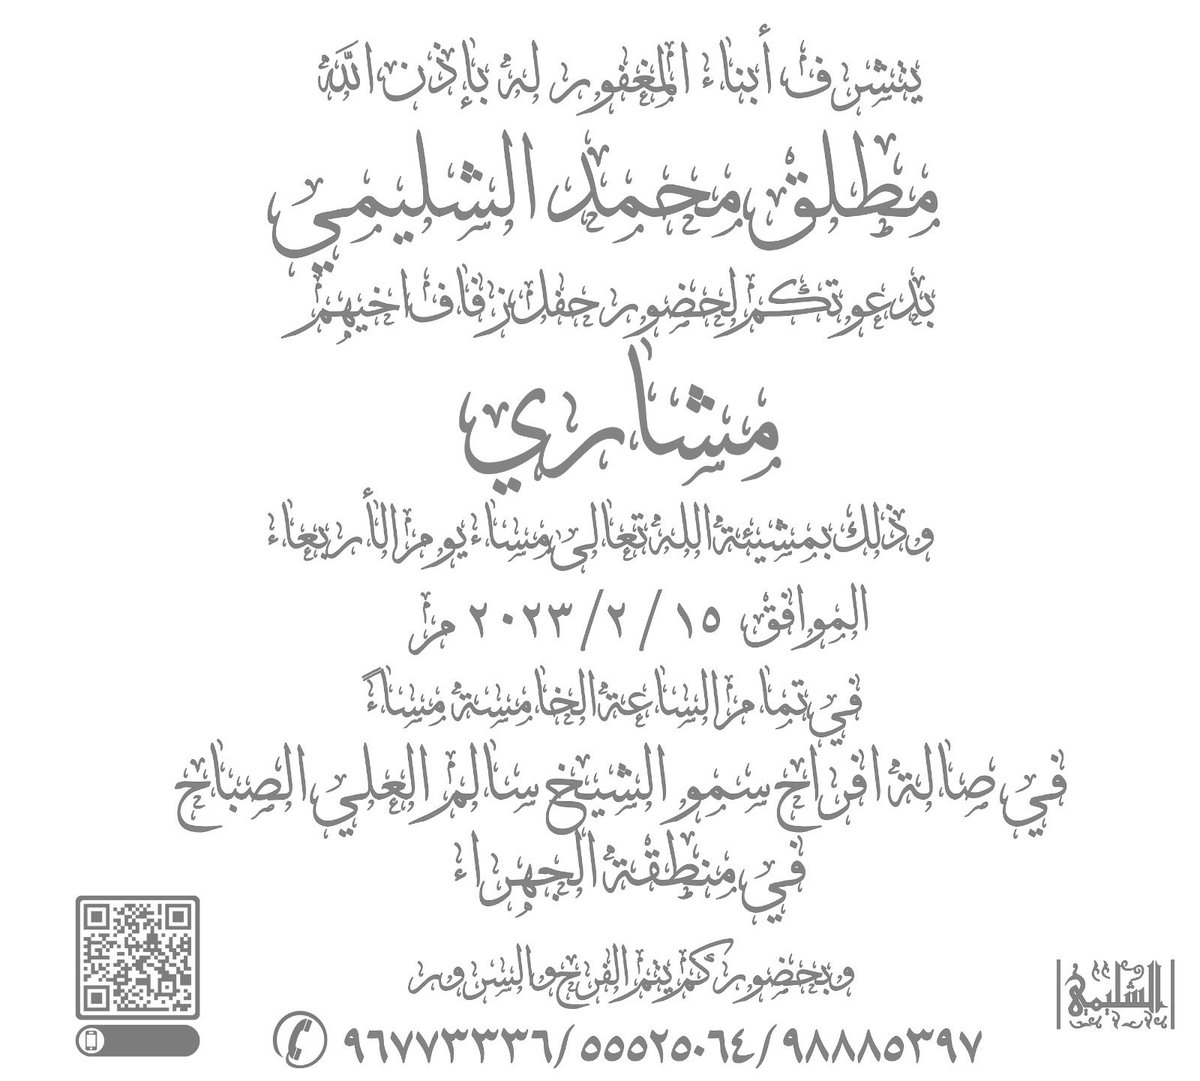 يتشرف أبناء المغفور له بإذن الله
مطلق محمد الشليمي
بدعوتكم لحضور حفل زفاف اخيهم
مشاري
وذلك بمشيئة الله تعالى مساء يوم الأربعاء
الموافق ١٥ / ٢ / ٢٠٢٣ م
في تمام الساعة الخامسة مساءً
في صالة افراح سمو الشيخ سالم العلي الصباح
في منطقة الجهراء
وبحضوركم يتم الفرح والسرور
٩٦٧٧٣٣٣٦/٥٥٥٢٥٠٦٤/٩٨٨٨٥٣٩٧
الشليمي